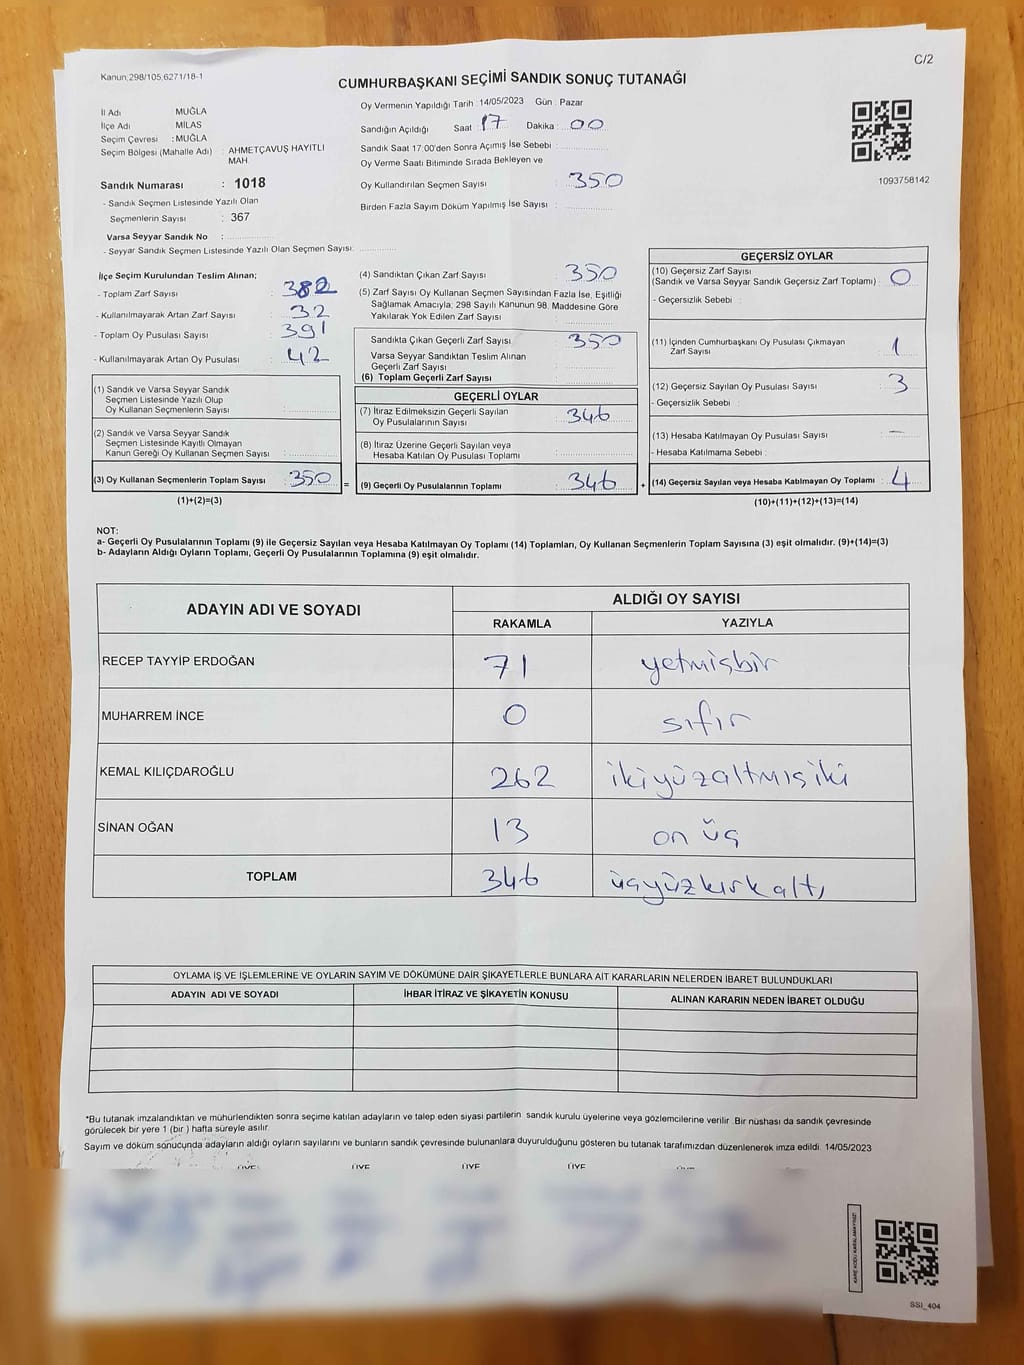 C/2
Kanun:298/105,6271/18-1
CUMHURBAŞKANI SEÇİMİ SANDIK SONUÇ TUTANAĞI
İl Adı MUĞLA
İlçe Adı MİLAS
Seçim Çevresi : MUĞLA
Seçim Bölgesi (Mahalle Adı) : AHMETÇAVUŞ HAYITLI MAH.
Sandık Numarası : 1018
- Sandık Seçmen Listesinde Yazılı Olan
Seçmenlerin Sayısı : 367
Varsa Seyyar Sandık No :
- Seyyar Sandık Seçmen Listesinde Yazılı Olan Seçmen Sayısı:
Oy Vermenin Yapıldığı Tarih :14/05/2023 Gün : Pazar
Sandığın Açıldığı Saat : 17 Dakika : 00
Sandık Saat 17:00'den Sonra Açımış İse Sebebi :
Oy Verme Saati Bitiminde Sırada Bekleyen ve
Oy Kullandırılan Seçmen Sayısı : 350
Birden Fazla Sayım Döküm Yapılmış İse Sayısı :
1093758142
İlçe Seçim Kurulundan Teslim Alınan;
- Toplam Zarf Sayısı : 382
- Kullanılmayarak Artan Zarf Sayısı : 32
- Toplam Oy Pusulası Sayısı : 391
- Kullanılmayarak Artan Oy Pusulası : 42
(1) Sandık ve Varsa Seyyar Sandık
Seçmen Listesinde Yazılı Olup
Oy Kullanan Seçmenlerin Sayısı :
(2) Sandık ve Varsa Seyyar Sandık
Seçmen Listesinde Kayıtlı Olmayan
Kanun Gereği Oy Kullanan Seçmen Sayısı :
(3) Oy Kullanan Seçmenlerin Toplam Sayısı : 350 =
(1)+(2)=(3)
(4) Sandıktan Çıkan Zarf Sayısı : 350
(5) Zarf Sayısı Oy Kullanan Seçmen Sayısından Fazla İse, Eşitliği
Sağlamak Amacıyla; 298 Sayılı Kanunun 98. Maddesine Göre
Yakılarak Yok Edilen Zarf Sayısı :
Sandıkta Çıkan Geçerli Zarf Sayısı : 350
Varsa Seyyar Sandıktan Teslim Alınan
Geçerli Zarf Sayısı :
(6) Toplam Geçerli Zarf Sayısı :
GEÇERLİ OYLAR
(7) İtiraz Edilmeksizin Geçerli Sayılan
Oy Pusulalarının Sayısı : 346
(8) İtiraz Üzerine Geçerli Sayılan veya
Hesaba Katılan Oy Pusulası Toplamı :
(9) Geçerli Oy Pusulalarının Toplamı : 346 +
GEÇERSİZ OYLAR
(10) Geçersiz Zarf Sayısı
(Sandık ve Varsa Seyyar Sandık Geçersiz Zarf Toplamı) : 0
- Geçersizlik Sebebi :
(11) İçinden Cumhurbaşkanı Oy Pusulası Çıkmayan
Zarf Sayısı : 1
(12) Geçersiz Sayılan Oy Pusulası Sayısı : 3
- Geçersizlik Sebebi :
(13) Hesaba Katılmayan Oy Pusulası Sayısı : —
- Hesaba Katılmama Sebebi :
(14) Geçersiz Sayılan veya Hesaba Katılmayan Oy Toplamı : 4
(10)+(11)+(12)+(13)=(14)
NOT:
a- Geçerli Oy Pusulalarının Toplamı (9) ile Geçersiz Sayılan veya Hesaba Katılmayan Oy Toplamı (14) Toplamları, Oy Kullanan Seçmenlerin Toplam Sayısına (3) eşit olmalıdır. (9)+(14)=(3)
b- Adayların Aldığı Oyların Toplamı, Geçerli Oy Pusulalarının Toplamına (9) eşit olmalıdır.
ADAYIN ADI VE SOYADI ALDIĞI OY SAYISI
RAKAMLA YAZIYLA
RECEP TAYYİP ERDOĞAN 71 yetmişbir
MUHARREM İNCE 0 sıfır
KEMAL KILIÇDAROĞLU 262 ikiyüzaltmışiki
SİNAN OĞAN 13 on üç
TOPLAM 346 üçyüzkırkaltı
OYLAMA İŞ VE İŞLEMLERİNE VE OYLARIN SAYIM VE DÖKÜMÜNE DAİR ŞİKAYETLERLE BUNLARA AİT KARARLARIN NELERDEN İBARET BULUNDUKLARI
ADAYIN ADI VE SOYADI İHBAR İTİRAZ VE ŞİKAYETİN KONUSU ALINAN KARARIN NEDEN İBARET OLDUĞU
*Bu tutanak imzalandıktan ve mühürlendikten sonra seçime katılan adayların ve talep eden siyasi partilerin sandık kurulu üyelerine veya gözlemcilerine verilir. Bir nüshası da sandık çevresinde
görülecek bir yere 1 (bir ) hafta süreyle asılır.
Sayım ve döküm sonucunda adayların aldığı oyların sayılarını ve bunların sandık çevresinde bulunanlara duyurulduğunu gösteren bu tutanak tarafımızdan düzenlenerek imza edildi. 14/05/2023
ÜYE ÜYE ÜYE ÜYE
KARE KODU KARALAMAYINIZ!
SSİ_404